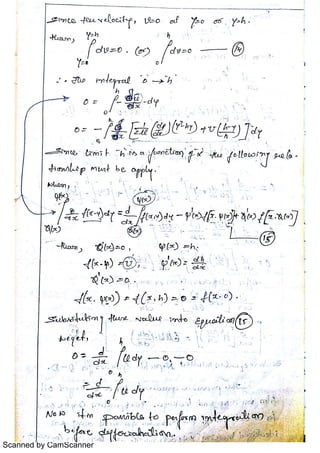 Since the velocity, v=0 at y=0 or y=h.
then, y=h h
∫ dv=0. (or) ∫ dv=0 — (14)
y=0 0
∴ The integral 0→h
h
0 = ∫ - ∂u/∂x · dy
0
0 = - ∫ ∂/∂x [ 1/2μ (dp/dx)(y²-hy) + U (h-y/h) ] dy
Since limit 'h' is a function of 'x' the following rela-
tionship must be apply.
when,
∫ d/dx f(x,y)dy = d/dx ∫ f(x,y)dy - φ'(x) f[x, φ(x)] + θ'(x) f[x, θ(x)]
— (15)
then, θ(x)=0, φ(x)=h.
φ'(x) = dh/dx
θ'(x) = 0.
f(x, φ(x)) = f(x, h) = 0 = f(x, 0).
Substituting these value into Equation (15)
we get,
h
0 = d/dx ∫ u dy - 0, - 0
0
h
= d/dx ∫ u dy
0
Now it's possible to perform integration
before differentiation.
Scanned by CamScanner